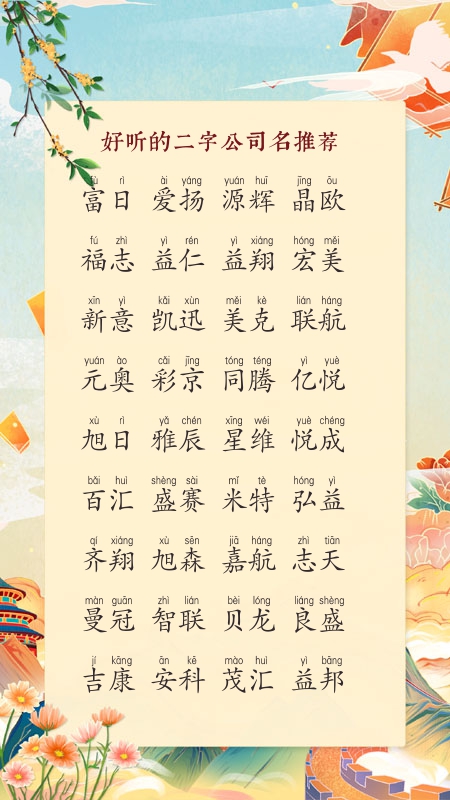 好听的二字公司名推荐
fù rì ài yáng yuán huī jīng ōu
富日 爱扬 源辉 晶欧
fú zhì yì rén yì xiáng hóng měi
福志 益仁 益翔 宏美
xīn yì kǎi xùn měi kè lián háng
新意 凯迅 美克 联航
yuán ào cǎi jīng tóng téng yì yuè
元奥 彩京 同腾 亿悦
xù rì yǎ chén xīng wéi yuè chéng
旭日 雅辰 星维 悦成
bǎi huì shèng sài mǐ tè hóng yì
百汇 盛赛 米特 弘益
qí xiáng xù sēn jiā háng zhì tiān
齐翔 旭森 嘉航 志天
màn guān zhì lián bèi lóng liáng shèng
曼冠 智联 贝龙 良盛
jí kāng ān kē mào huì yì bāng
吉康 安科 茂汇 益邦